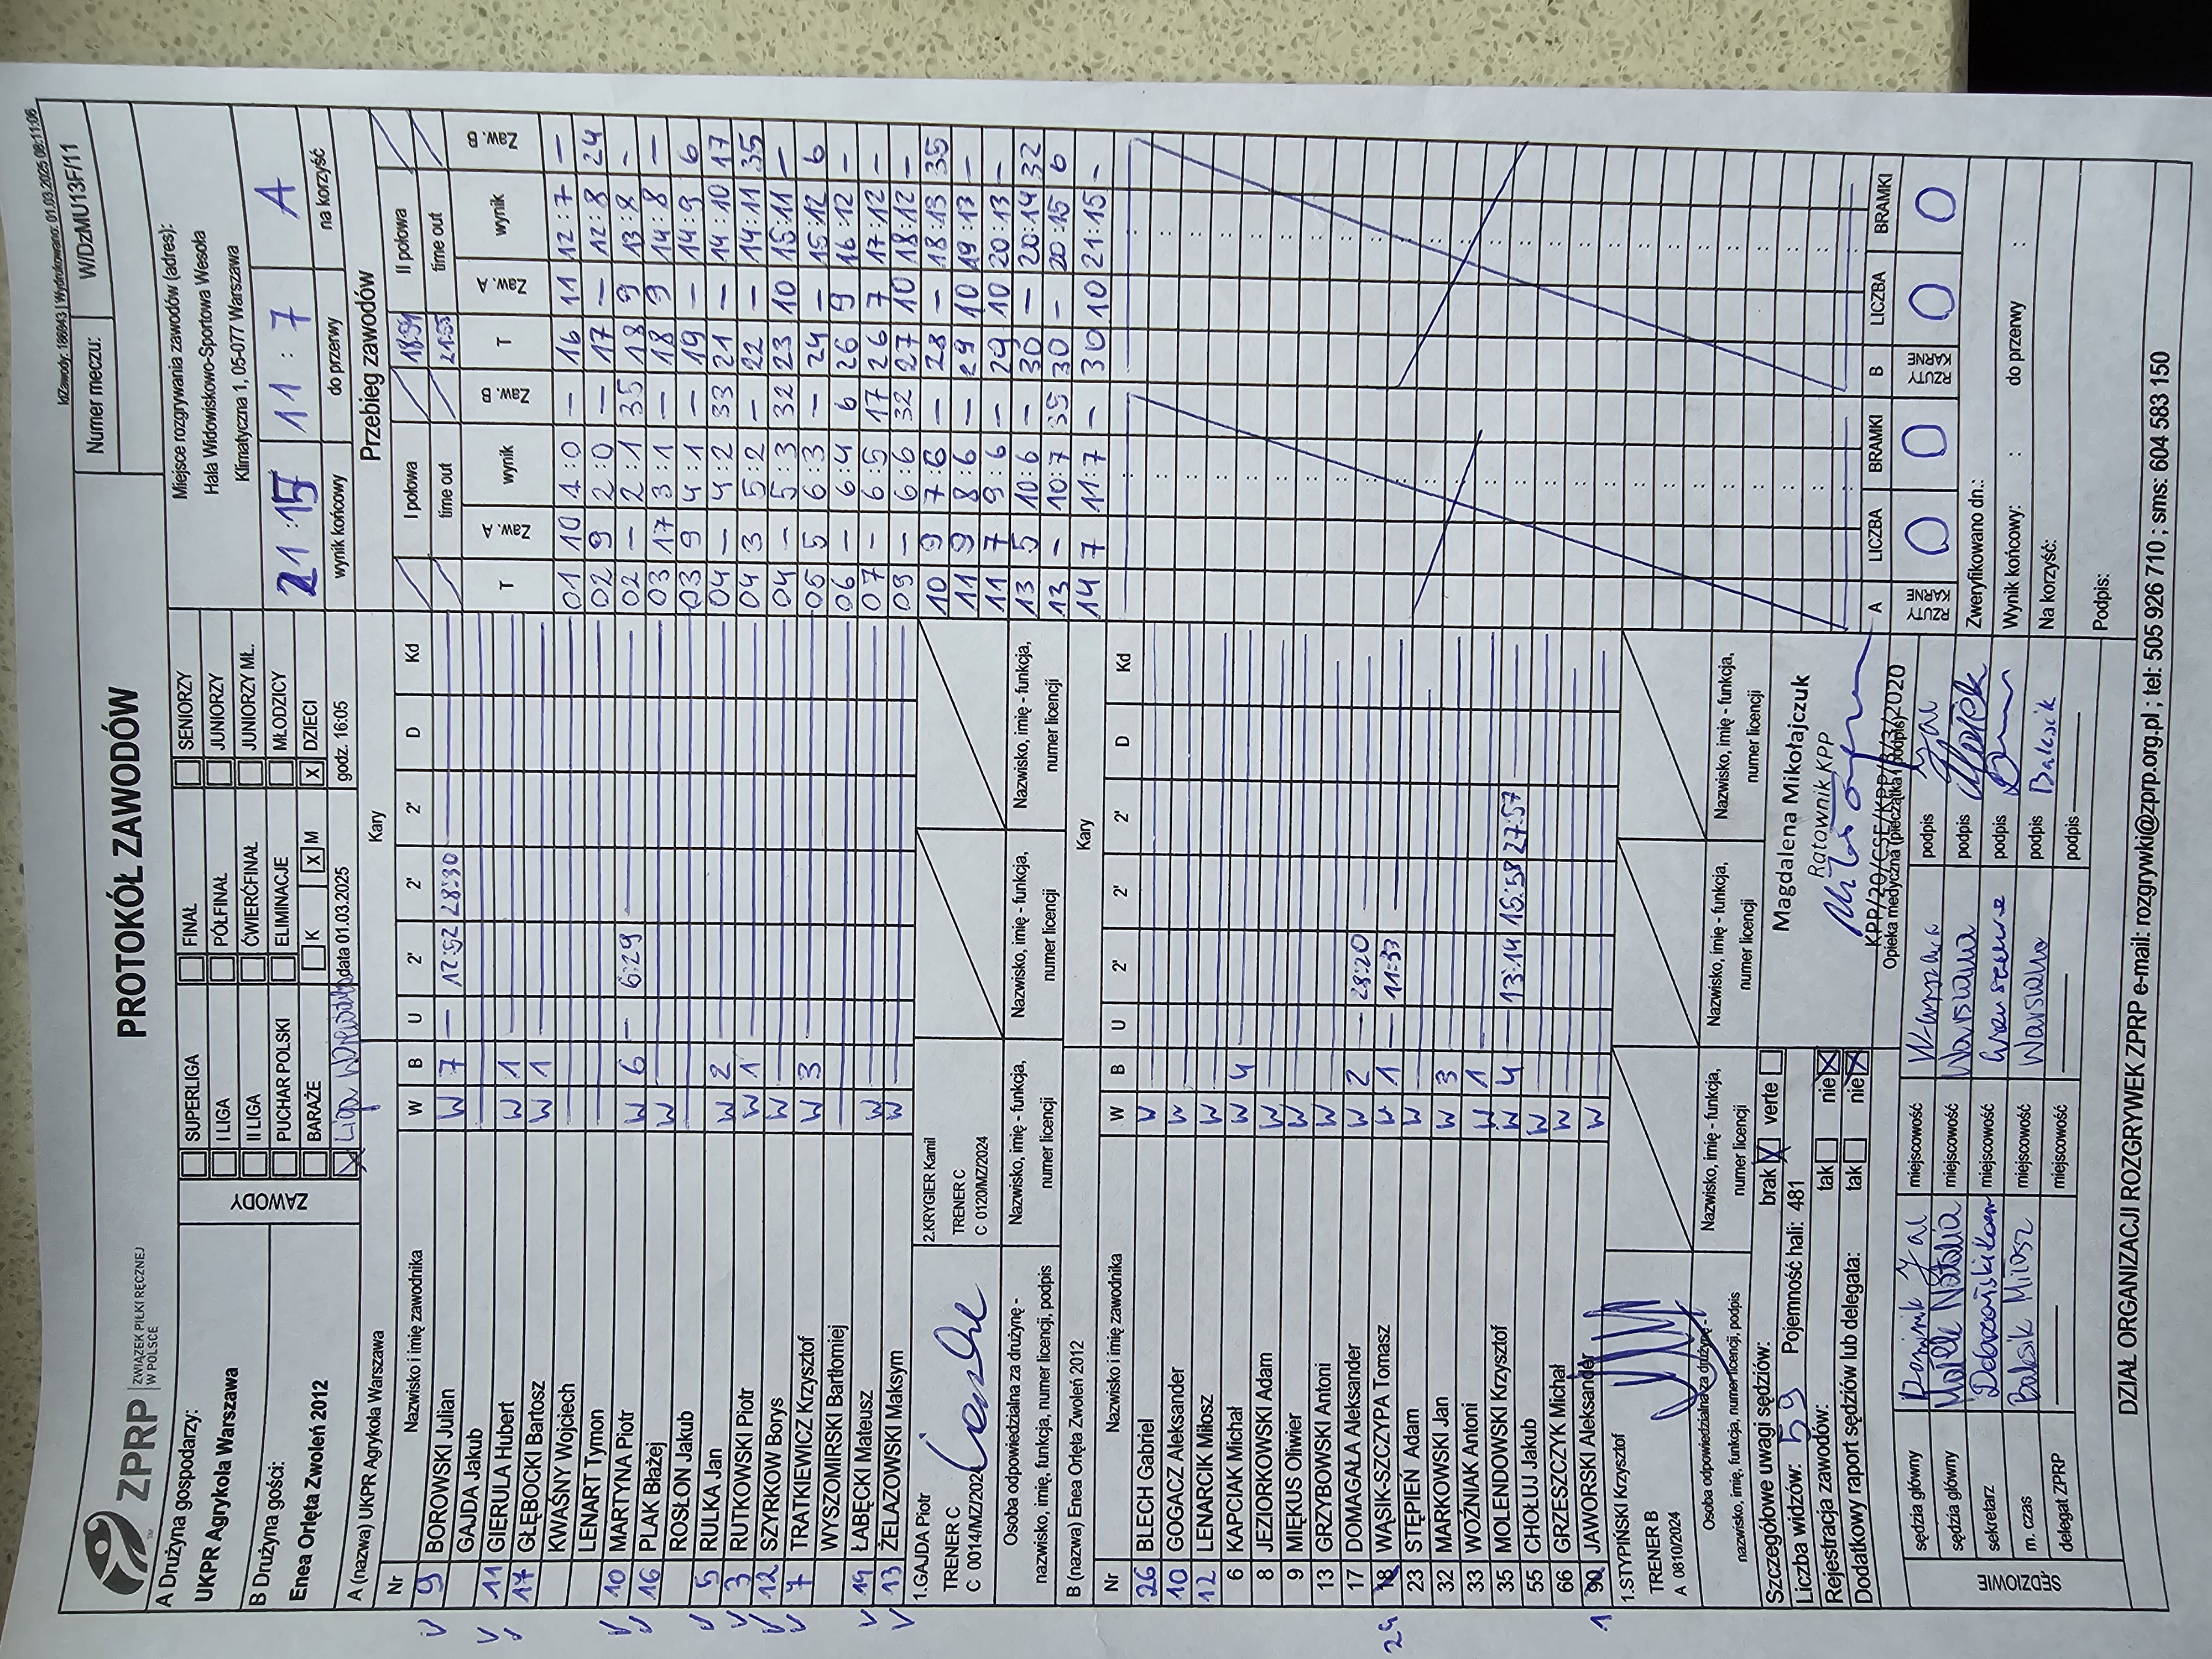 IdZawody: 186843 | Wydrukowano: 01.03.2025 08:11:06
ZPRP ZWIĄZEK PIŁKI RĘCZNEJ W POLSCE
PROTOKÓŁ ZAWODÓW
Numer meczu: W/DzMU13F/11
A Drużyna gospodarzy:
UKPR Agrykola Warszawa
B Drużyna gości:
Enea Orlęta Zwoleń 2012
ZAWODY
SUPERLIGA FINAŁ SENIORZY
I LIGA PÓŁFINAŁ JUNIORZY
II LIGA ĆWIERĆFINAŁ JUNIORZY MŁ.
PUCHAR POLSKI ELIMINACJE MŁODZICY
BARAŻE K X M X DZIECI
X Liga data 01.03.2025 godz. 16:05
Miejsce rozgrywania zawodów (adres):
Hala Widowiskowo-Sportowa Wesoła
Klimatyczna 1, 05-077 Warszawa
21:15 11:7 A
wynik końcowy do przerwy na korzyść
A (nazwa) UKPR Agrykola Warszawa Kary
Nr Nazwisko i imię zawodnika W B U 2' 2' 2' D Kd
V 9 BOROWSKI Julian W 7 — 12:52 28:30
GAJDA Jakub
V 11 GIERULA Hubert W 1
V 17 GŁĘBOCKI Bartosz W 1
KWAŚNY Wojciech
LENART Tymon
V 10 MARTYNA Piotr W 6 — 6:29
V 16 PLAK Błażej W
ROSŁON Jakub
V 5 RULKA Jan W 2
V 3 RUTKOWSKI Piotr W 1
V 12 SZYRKOW Borys W
V 7 TRATKIEWICZ Krzysztof W 3
WYSZOMIRSKI Bartłomiej
V 19 ŁABĘCKI Mateusz W
V 13 ŻELAZOWSKI Maksym W
1.GAJDA Piotr 2.KRYGIER Kamil
TRENER C TRENER C
C 0014/MZ/2024 C 0120/MZ/2024
Osoba odpowiedzialna za drużynę - nazwisko, imię, funkcja, numer licencji, podpis
Nazwisko, imię - funkcja, numer licencji
Nazwisko, imię - funkcja, numer licencji
Nazwisko, imię - funkcja, numer licencji
B (nazwa) Enea Orlęta Zwoleń 2012 Kary
Nr Nazwisko i imię zawodnika W B U 2' 2' 2' D Kd
26 BLECH Gabriel W
10 GOGACZ Aleksander W
12 LENARCIK Miłosz W
6 KAPCIAK Michał W 4
8 JEZIORKOWSKI Adam W
9 MIĘKUS Oliwier W
13 GRZYBOWSKI Antoni W
17 DOMAGAŁA Aleksander W 2 — 28:20
24 18 WĄSIK-SZCZYPA Tomasz W 1 — 11:33
23 STĘPIEŃ Adam W
32 MARKOWSKI Jan W 3
33 WOŹNIAK Antoni W 1
35 MOLENDOWSKI Krzysztof W 4 — 13:14 15:58 27:57
55 CHOŁUJ Jakub W
66 GRZESZCZYK Michał W
1 90 JAWORSKI Aleksander W
1.STYPIŃSKI Krzysztof
TRENER B
A 0810/2024
Osoba odpowiedzialna za drużynę - nazwisko, imię, funkcja, numer licencji, podpis
Nazwisko, imię - funkcja, numer licencji
Nazwisko, imię - funkcja, numer licencji
Nazwisko, imię - funkcja, numer licencji
Szczegółowe uwagi sędziów: brak X verte
Liczba widzów: 59 Pojemność hali: 481
Rejestracja zawodów: tak nie X
Dodatkowy raport sędziów lub delegata: tak nie X
Magdalena Mikołajczuk
Ratownik KPP
KPP/20/CSE/KPP/3/3/2020
Opieka medyczna (pieczątka i podpis)
SĘDZIOWIE
sędzia główny miejscowość Warszawa podpis
sędzia główny Natalia miejscowość Warszawa podpis
sekretarz miejscowość podpis
m. czas Balasik Miłosz miejscowość Warszawa podpis Balasik
delegat ZPRP — miejscowość — podpis —
Przebieg zawodów
I połowa time out II połowa time out
18:54
21:53
T Zaw. A wynik Zaw. B T Zaw. A wynik Zaw. B
01 10 1:0 — 16 11 12:7 —
02 9 2:0 — 17 — 12:8 24
02 — 2:1 35 18 9 13:8 —
03 17 3:1 — 18 9 14:8 —
03 9 4:1 — 19 — 14:9 6
04 — 4:2 33 21 — 14:10 17
04 3 5:2 — 22 — 14:11 35
04 — 5:3 32 23 10 15:11 —
05 5 6:3 — 24 — 15:12 6
06 — 6:4 6 26 9 16:12 —
07 — 6:5 17 26 7 17:12 —
09 — 6:6 32 27 10 18:12 —
10 9 7:6 — 28 — 18:13 35
11 9 8:6 — 29 10 19:13 —
11 7 9:6 — 29 10 20:13 —
13 5 10:6 — 30 — 20:14 32
13 — 10:7 35 30 — 20:15 6
14 7 11:7 — 30 10 21:15 —
A LICZBA BRAMKI B LICZBA BRAMKI
RZUTY KARNE 0 0 RZUTY KARNE 0 0
Zweryfikowano dn.:
Wynik końcowy: : do przerwy :
Na korzyść:
Podpis:
DZIAŁ ORGANIZACJI ROZGRYWEK ZPRP e-mail: rozgrywki@zprp.org.pl ; tel: 505 926 710 ; sms: 604 583 150